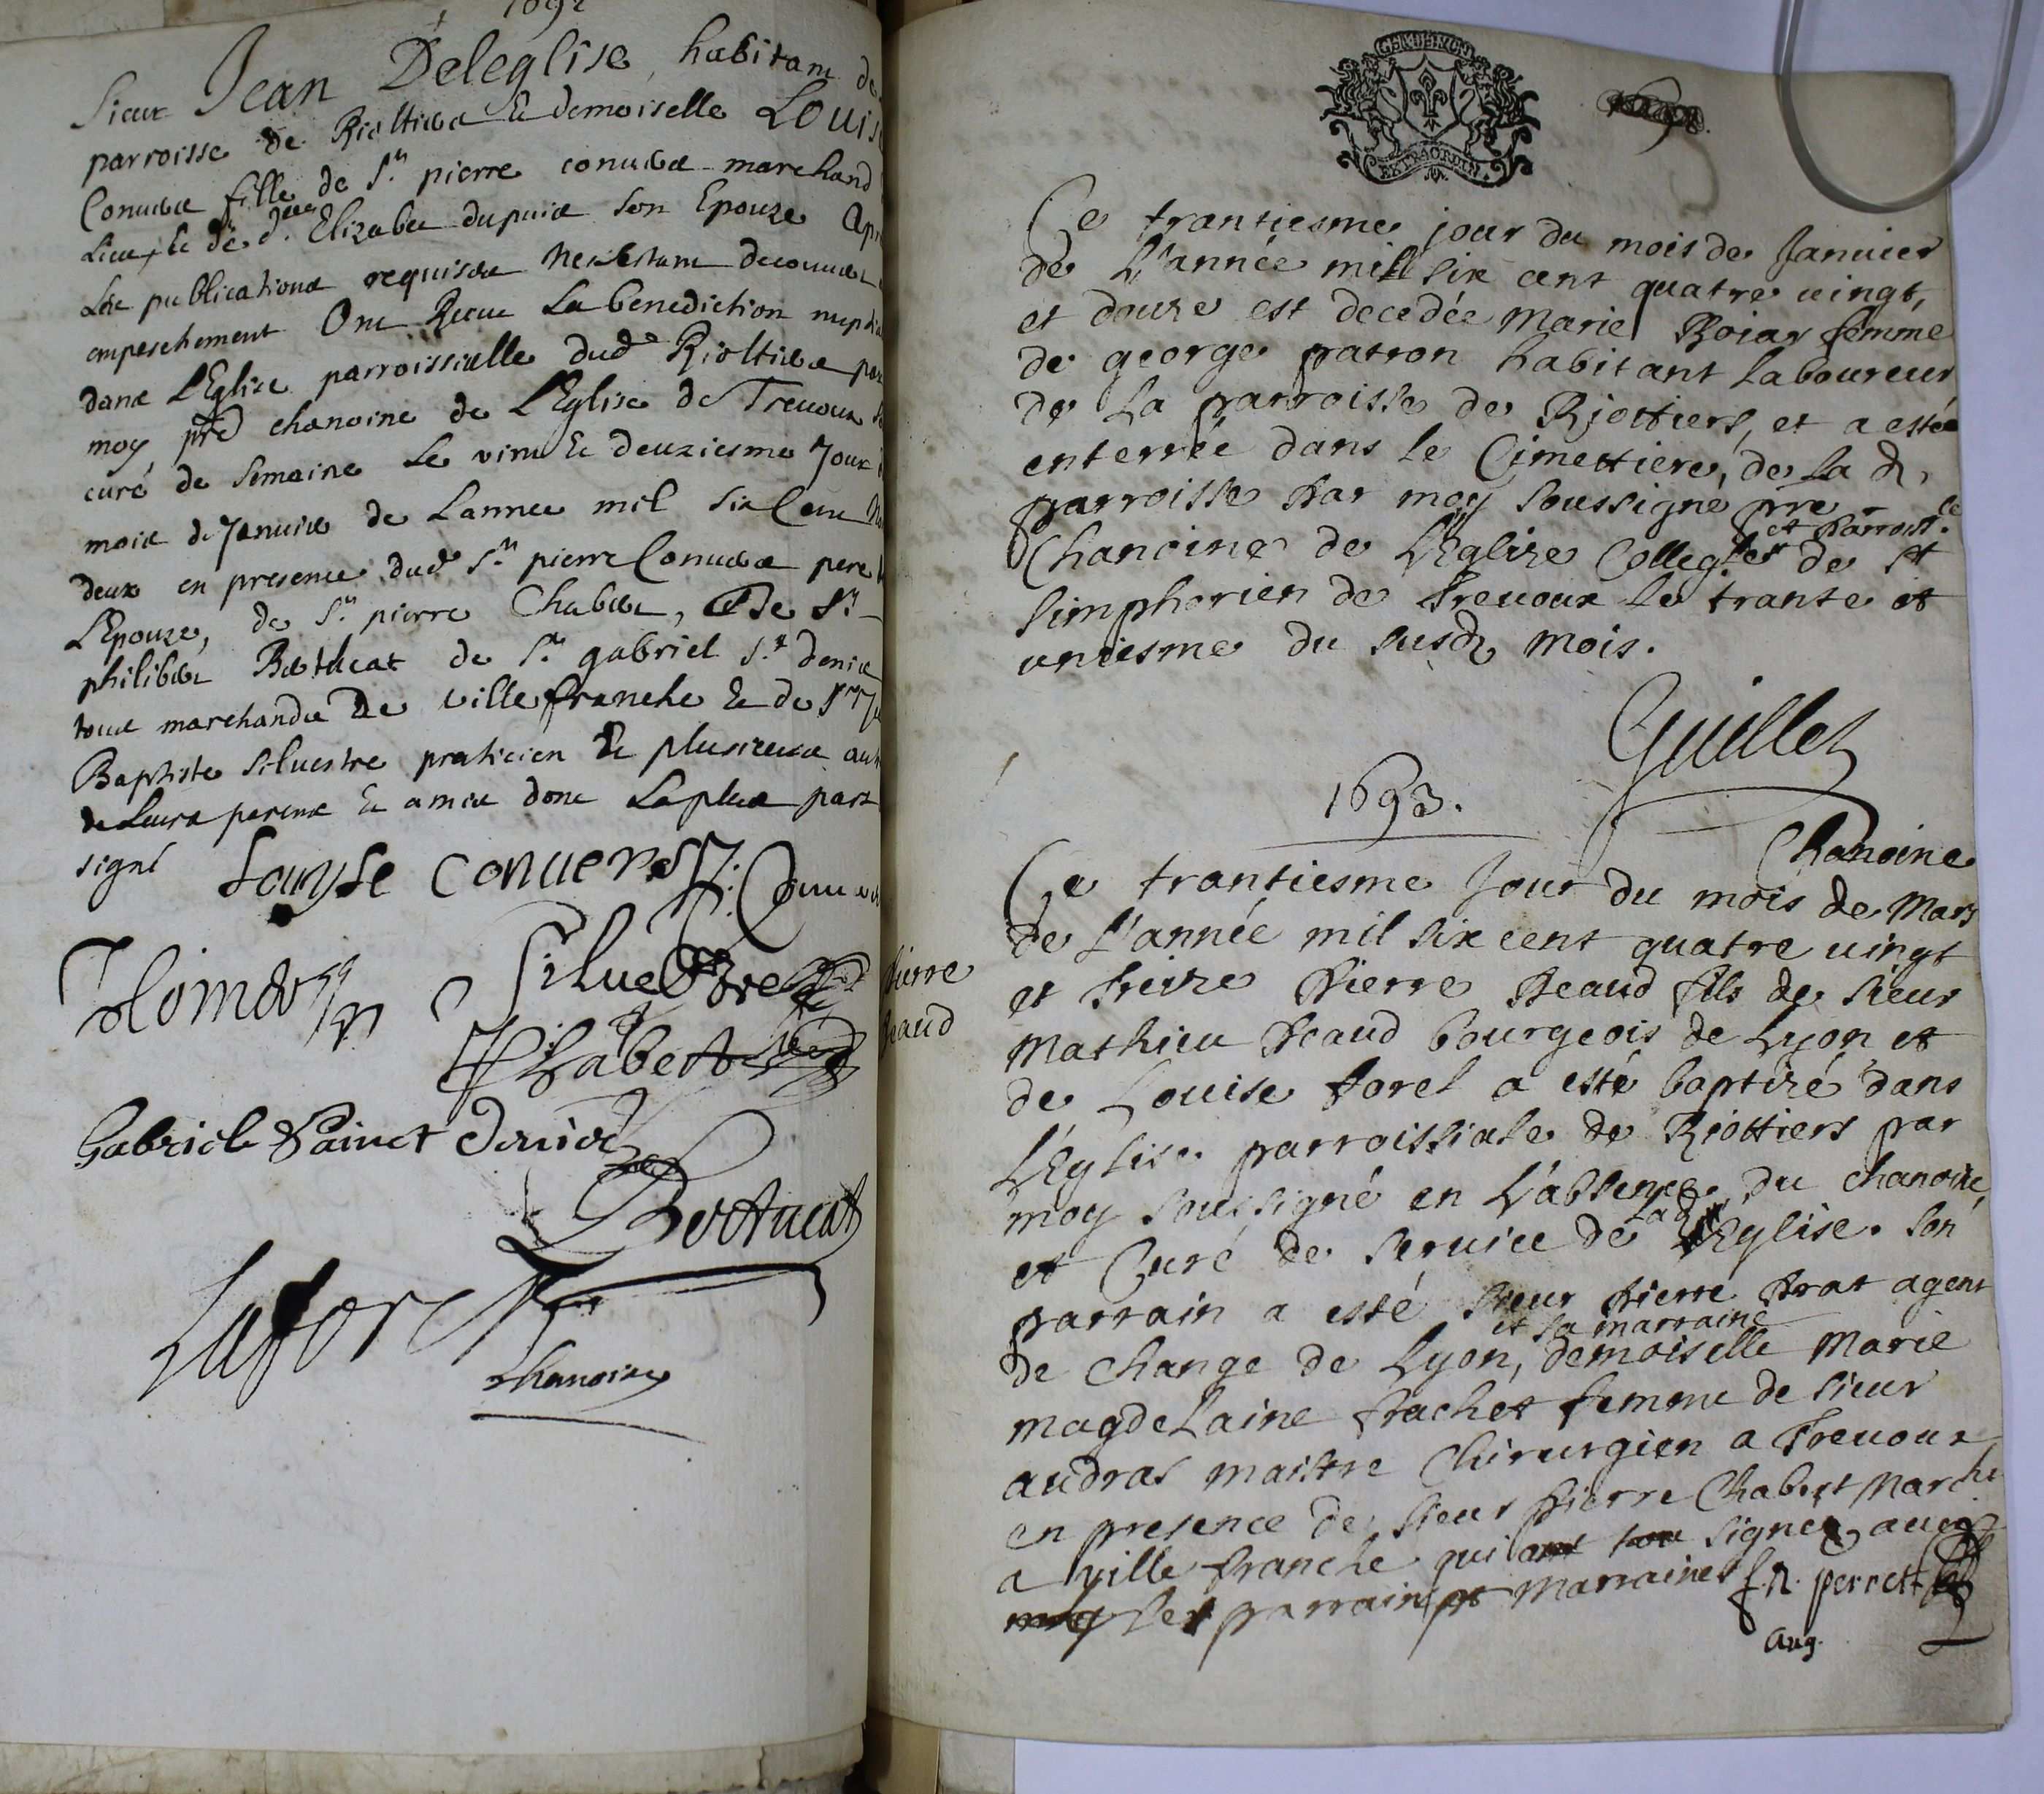 1692
Sieur Jean Deleglise, habitant de
parroisse de Riottiers & demoiselle Louise
Conuers fille de Sr. pierre conuers marchand
Lieu, & de d. Elizabet dupuis son Epouze Apr
Les publications requises Ne s'estant decouuert
empeschement Ont Receu La benediction nuptia
dans L'Eglise parroissialle dud. Riottiers par
moy pre chanoine de L'Eglise de Treuoux
curé de semaine Le vint & deuziesme Jour
mois de Januier de Lannee mil six Cent
deux en presence dud. Sr. pierre Conuers pere
L'Epouze, de Sr. pierre Chabert, & de Sr.
philibert Bottucat de Sr. gabriel St. denis
tous marchands de villefranche & de Sr. Je
Baptiste Siluestre praticien & plusieurs aut
de Leurs parens & amis dont La plus part
signé Louyse Conuers P. Conuers
Siluestre
P Chabert
Gabriel Sainct Denis
Bottucat
Laforest
chanoine
GEN. DE LYON
EXTRAORDIN.
Ce trantiesme jour du mois de Januier
de L'année mill six cent quatre uingt,
et douze est decedée Marie Roiar femme
de george patron habitant Laboureur
de La parroisse de Riottiers, et a estée
enterrée dans le Cimettiere, de La d.
parroisse Par moy soussigné pre
Chanoine de L'Eglize Collegle et Parroist.le de St
Simphorien de Treuoux le trante et
uniesme du susd. mois.
Guillet
Chanoine
1693.
Pierre
Peaud
Ce trantiesme Jour du mois de Mars
de L'année mil six cent quatre uingt
et treize Pierre Peaud fils de sieur
Mathieu Peaud bourgeois de Lyon et
de Louise Porel a esté baptizé dans
L'Eglise parroissiale de Riottiers par
moy soussigné en L'absence du chanoine
et Curé de seruice de Lad. Eglise. son
parrain a esté sieur Pierre Prat agent
de change de Lyon, et sa marraine demoiselle Marie
magdelaine Frachet femme de sieur
audras maistre Chirurgien a Treuoux
en presence de sieur Pierre Chabert March
a Ville franche qui ont signéz auec
les parrain et Marraines f. n. perrett
aug.